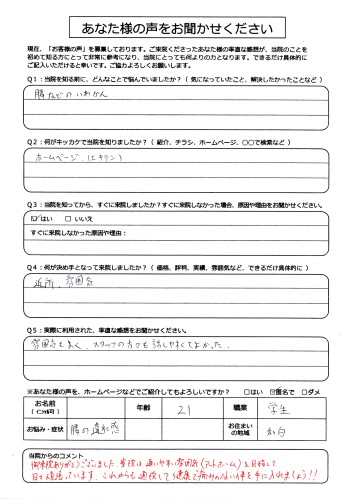 あなた様の声をお聞かせください
現在、「お客様の声」を募集しております。ご来院くださったあなた様の率直な感想が、当院のことを
初めて知る方にとって非常に参考になり、当院にとっても何よりの力となります。できるだけ具体的に
ご記入いただけると幸いです。ご協力よろしくお願いします。
Q1：当院を知る前に、どんなことで悩んでいましたか？（ 気になっていたこと、解決したかったことなど ）
腰などのいわかん
Q2：何がキッカケで当院を知りましたか？（ 紹介、チラシ、ホームページ、〇〇で検索など ）
ホームページ（エキテン）
Q3：当院を知ってから、すぐに来院しましたか？すぐに来院しなかった場合、原因や理由をお聞かせください。
☑はい　□ いいえ
すぐに来院しなかった原因や理由：
Q4：何が決め手となって来院しましたか？（ 価格、評判、実績、雰囲気など、できるだけ具体的に ）
近所、雰囲気
Q5：実際に利用された、率直な感想をお聞かせください。
雰囲気も良く、スタッフの方々も話しやすくてよかった。
※あなた様の声を、ホームページなどでご紹介してもよろしいですか？　□はい ☑匿名で □ダメ
お名前
（イニシャル可）
年齢
21
職業
学生
お悩み・症状
腰の違和感
お住まい
の地域
当院からのコメント
御来院ありがとうございました。当院は通いやすい雰囲気（アットホーム）を目指して
日々頑張っています。これからも通院して健康で痛みのない体を手に入れましょう!!